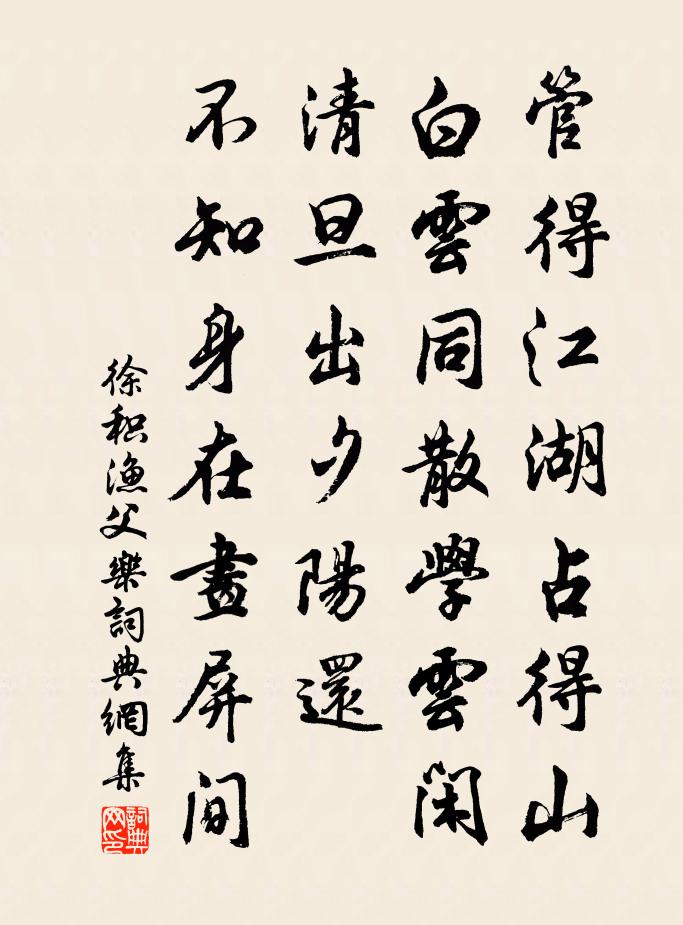 管得江湖占得山
白雲同散學雲閑
清旦出夕陽還
不知身在畫屏間
徐积漁父樂詞典網集
詞典网印